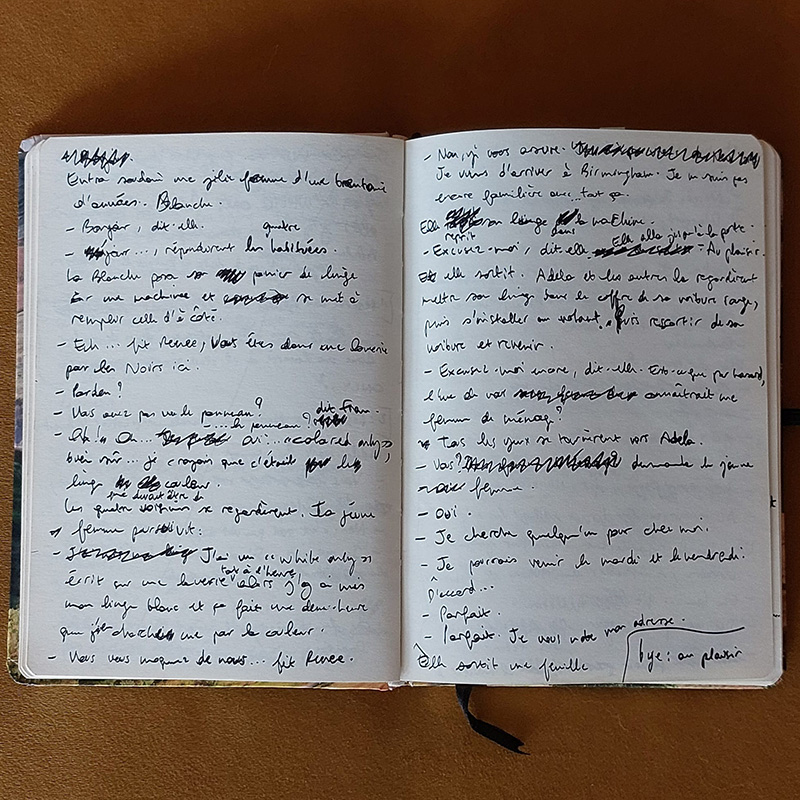 Entra soudain une jolie femme d'une trentaine
d'années. Blanche.
- Bonjour, dit-elle.
quatre
- ...jour..., répondirent les habituées.
La Blanche posa son panier de linge
sur une machine et se mit à
remplir celle d'à côté.
- Euh... fit Renée, vous êtes dans une laverie
pour les Noirs ici.
- Pardon ?
- Vous avez pas vu le panneau ? dit Fran.
... le panneau ?
- Ah... oui... « colored only »,
bien sûr... je croyais que c'était pour le
linge couleur.
Les quatre se regardèrent. La jeune
femme poursuivit :
- J'ai vu un « white only »
tout à l'heure
écrit sur une laverie alors j'y ai mis
mon linge blanc et ça fait une demi-heure
que j'en cherche une pour la couleur.
- Vous vous moquez de nous... fit Renée.
- Non, j'vous assure.
Je viens d'arriver à Birmingham. Je ne suis pas
encore familière avec... tout ça.
Elle reprit son linge dans la machine.
Elle alla jusqu'à la porte.
- Excusez-moi, dit-elle. - Au plaisir.
Et elle sortit. Adela et les autres la regardèrent
mettre son linge dans le coffre de sa voiture rouge,
puis s'installer au volant. Puis ressortir de son
voiture et revenir.
- Excusez-moi encore, dit-elle. Est-ce que par hasard,
l'une de vous connaîtrait une
femme de ménage ?
Tous les yeux se tournèrent vers Adela.
- Vous ? demanda la jeune
femme.
- Oui.
- Je cherche quelqu'un pour chez moi.
- Je pourrais venir le mardi et le vendredi.
D'accord...
- Parfait.
- Parfait. Je vous note mon adresse.
Elle sortit une feuille
bye : au plaisir